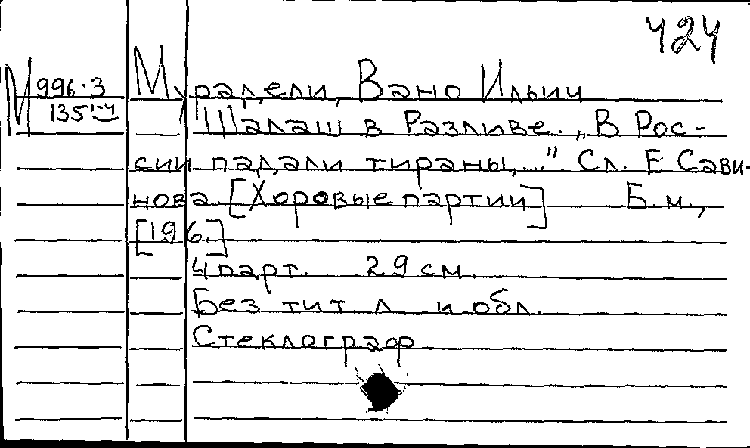 424
М 996.3
135
Мурадели, Вано Ильич
Шалаш в Разливе. „В Рос-
сии падали тираны,..." Сл. Е Сави-
нова [Хоровые партии] Б.м.,
[196.]
4 парт. 29 см.
Без тит л и обл.
Стеклограф